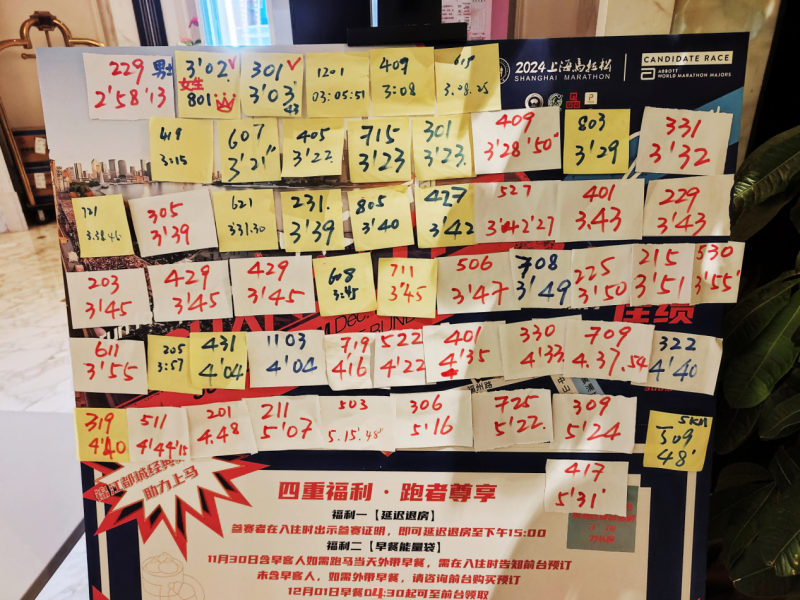 2024上海马拉松
SHANGHAI MARATHON
CANDIDATE RACE
ABBOTT
WORLD MARATHON MAJORS
229 男士
2'58'13
3'02
女生
801
301
3'03'
43
1201
03:05:51
409
3:08
619
3.08.25
419
3:15
607
3'21"
405
3'22
715
3'23
301
3'23.
409
3'28'50"
803
3'29
331
3'32
721
3.38.46
305
3'39
621
331.30
231.
3'39
805
3'40
427
3'42
527
3'42'27
401
3.43
229
3'43
203
3'45
429
3'45
429
3'45
608
3:45
711
3'45
506
3'47
708
3'49
225
3'50
215
3'51
530
3'55'
611
3'55
205
3:57
431
4'04
1103
4'04
719
4'16
522
4'22
401
4'35
330
4'37.
709
4.37.54
322
4'40
319
4'40
511
4'44'15
201
4.48
211
5'07
503
5.15.48"
306
5'16
725
5'22.
309
5'24
5KM
309
48'
417
5'31'
锦江都城经典
助力上马
四重福利·跑者尊享
福利一【延迟退房】
参赛者在入住时出示参赛证明，即可延迟退房至下午15:00
福利二【早餐能量袋】
11月30日含早客人如需跑马当天外带早餐，需在入住时告知前台预订
未含早客人，如需外带早餐，请咨询前台购买预订
12月01日早餐04:30起可至前台领取